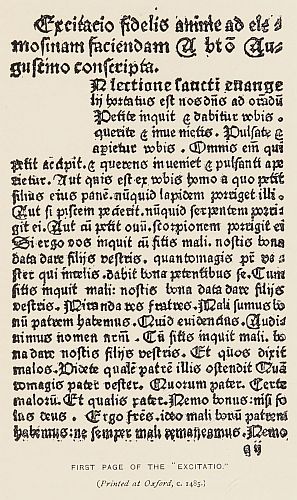 Excitacio fidelis anime ad ele
mosinam faciendam A bt̄o Au⸗
gustino conscripta.
N lectione sancti euange
lij hortatus est nos dn̄s ad orādū
Petite inquit & dabitur vobis.
querite & inuenietis. Pulsate &
aperietur vobis. Omnis em̄ qui
petit accipit. & querens inueniet & pulsanti ape
rietur. Aut quis est ex vobis homo a quo petit
filius eius panē. nūquid lapidem porriget illi.
Aut si piscem pecierit. nūquid serpentem porri⸗
git ei. Aut cū petit ouū. scorpionem porrigit ei
Si ergo vos inquit cū sitis mali. nostis bona
data dare filijs vestris. quantomagis pr̄ ve⸗
ster qui in celis. dabit bona petentibus se. Cum
sitis inquit mali: nostis bona data dare filijs
vestris. Miranda res fratres. Mali sumus bo
nū patrem habemus. Quid euidencius. Audi
uimus nomen nrm̄. Cū sitis inquit mali. bo
na dare nostis filijs vestris. Et quos dixit
malos. Videte qualē patrē illis ostendit Quā
tomagis pater vester. Quorum pater. Certe
malorū. Et qualis pater. Nemo bonus: nisi so
lus deus. Ergo frēs. ideo mali bonū patrem
habemus: ne semper mali remaneamus. Nemo
FIRST PAGE OF THE "EXCITATIO."
(Printed at Oxford, c. 1485.)